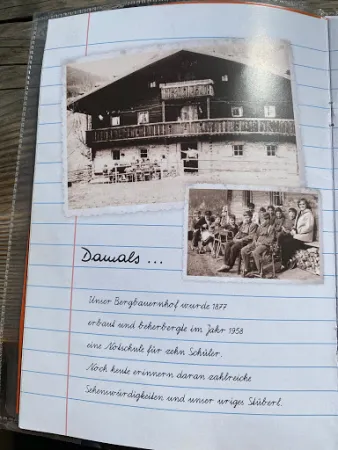 Damals ...
Unser Bergbauernhof wurde 1877
erbaut und beherbergte im Jahr 1958
eine Notschule für zehn Schüler.
Noch heute erinnern daran zahlreiche
Sehenswürdigkeiten und unser uriges Stüberl.